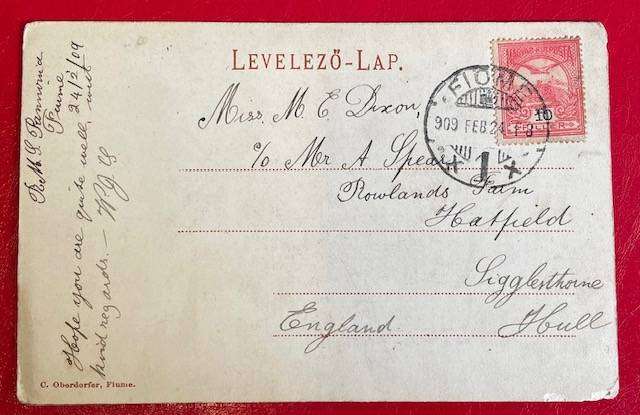 LEVELEZŐ-LAP.
R.M.S. Pannonia
Fiume
24/2/09
Hope you are quite well, with
kind regards. — W.J.S
Miss. M. E. Dixon,
c/o Mr A Spear
Rowlands Farm
Hatfield
Sigglesthorne
Hull
England
MAGYAR KIR. POSTA
10
FILLÉR
FIUME
909 FEB 24
1
C. Oberdorfer, Fiume.